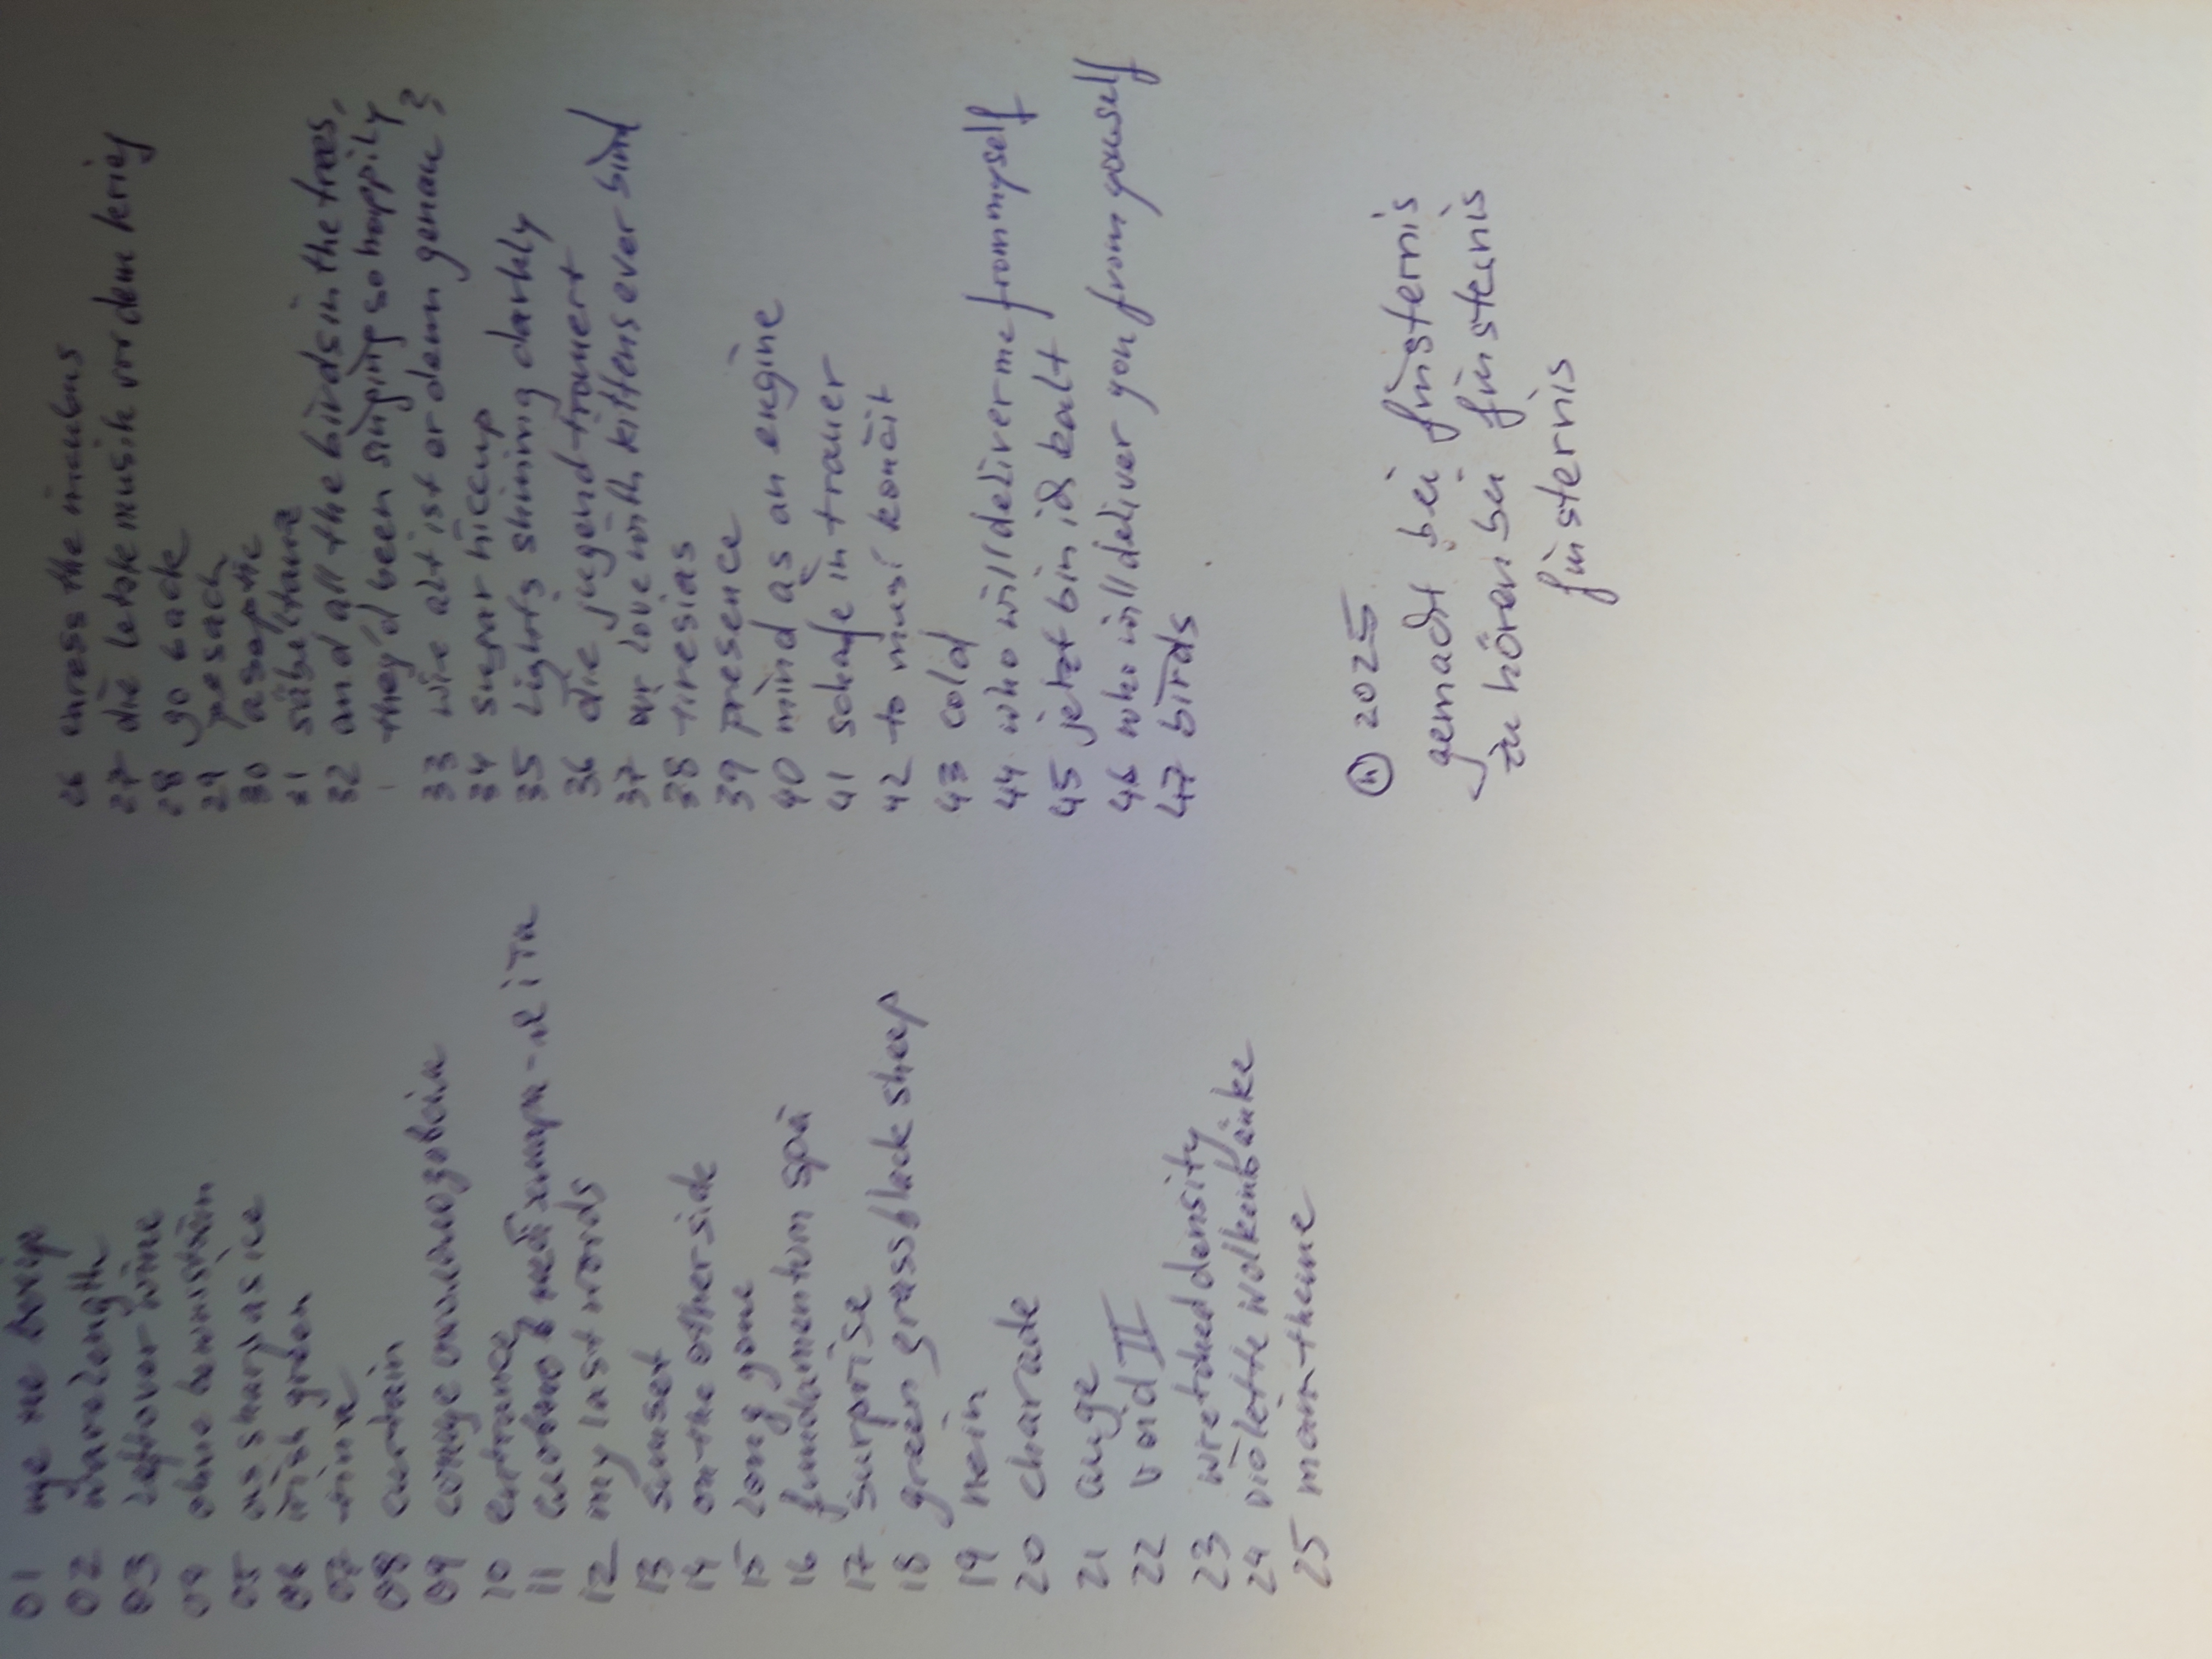 01
02 wavelength
03 leftover wine
04 ohne
05 as sharp as ice
06 irish green
07 time
08 curtain
09
10 entrance
11
12 my last words
13 sunset
14 on the other side
15 long gone
16 fundamentum spä
17 surprise
18 green grass black sheep
19 nein
20 charade
21 auge
22 void II
23 wretched density
24 violette wolkenbänke
25 main theme
26 the incubus
27 die letzte musik vor dem krieg
28 go back
29 pesach
30
31 säbeltanz
32 and all the birds in the trees,
they'd been singing so happily
33 wie alt ist er denn genau?
34 sugar hiccup
35 lights shining darkly
36 die jugend trauert
37 our love with kittens ever bind
38 tiresias
39 presence
40 mind as an engine
41 schafe in trauer
42 to
43 cold
44 who will deliver me from myself
45 jetzt bin ich kalt
46 who will deliver you from youself
47 birds
2025
gemacht bei finsternis
zu hören bei finsternis
finsternis